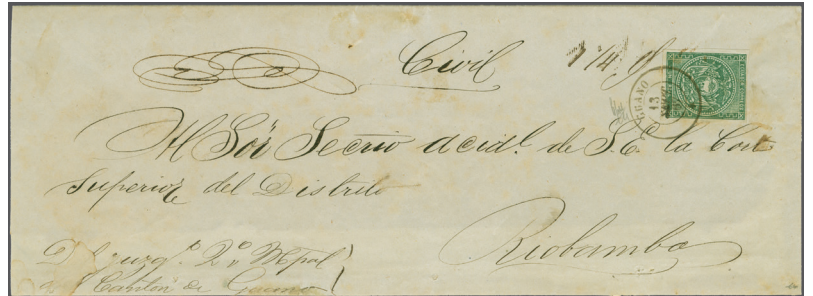 Civil
Al Sōr Secrio accidl. de S.E. la Corte
Superior del Distrito
Riobamba
GUANO
13
Del Juzgo. 2o. Mpal
del Canton de Guano